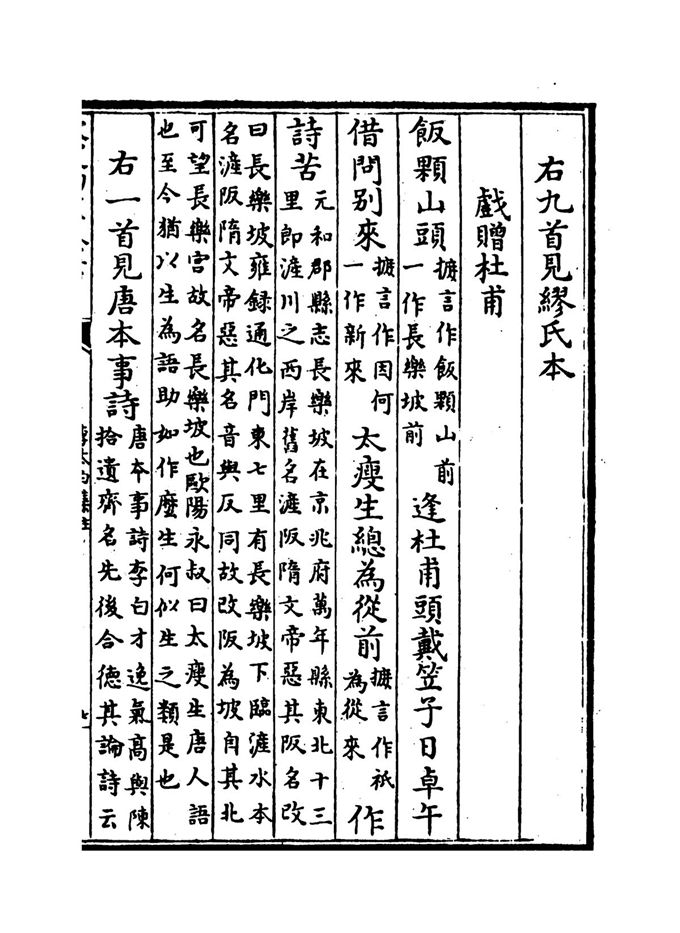 右九首見繆氏本
戯贈杜甫
飯顆山頭摭言作飯顆山前一作長樂坡前逢杜甫頭戴笠子日卓午
借問别來摭言作因何一作新來太瘦生總為從前摭言作祇為從來作
詩苦元和郡縣志長樂坡在京兆府萬年縣東北十三里即滻川之西岸舊名滻阪隋文帝惡其阪名改
曰長樂坡雍録通化門東七里有長樂坡下臨滻水本名滻阪隋文帝惡其名音與反同故改阪為坡自其北
可望長樂宫故名長樂坡也歐陽永叔曰太瘦生唐人語也至今猶以生為語助如作麽生何似生之類是也
右一首見唐本事詩唐本事詩李白才逸氣髙與陳拾遺齊名先後合徳其論詩云